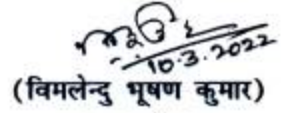 10.3.2022
(विमलेन्दु भूषण कुमार)